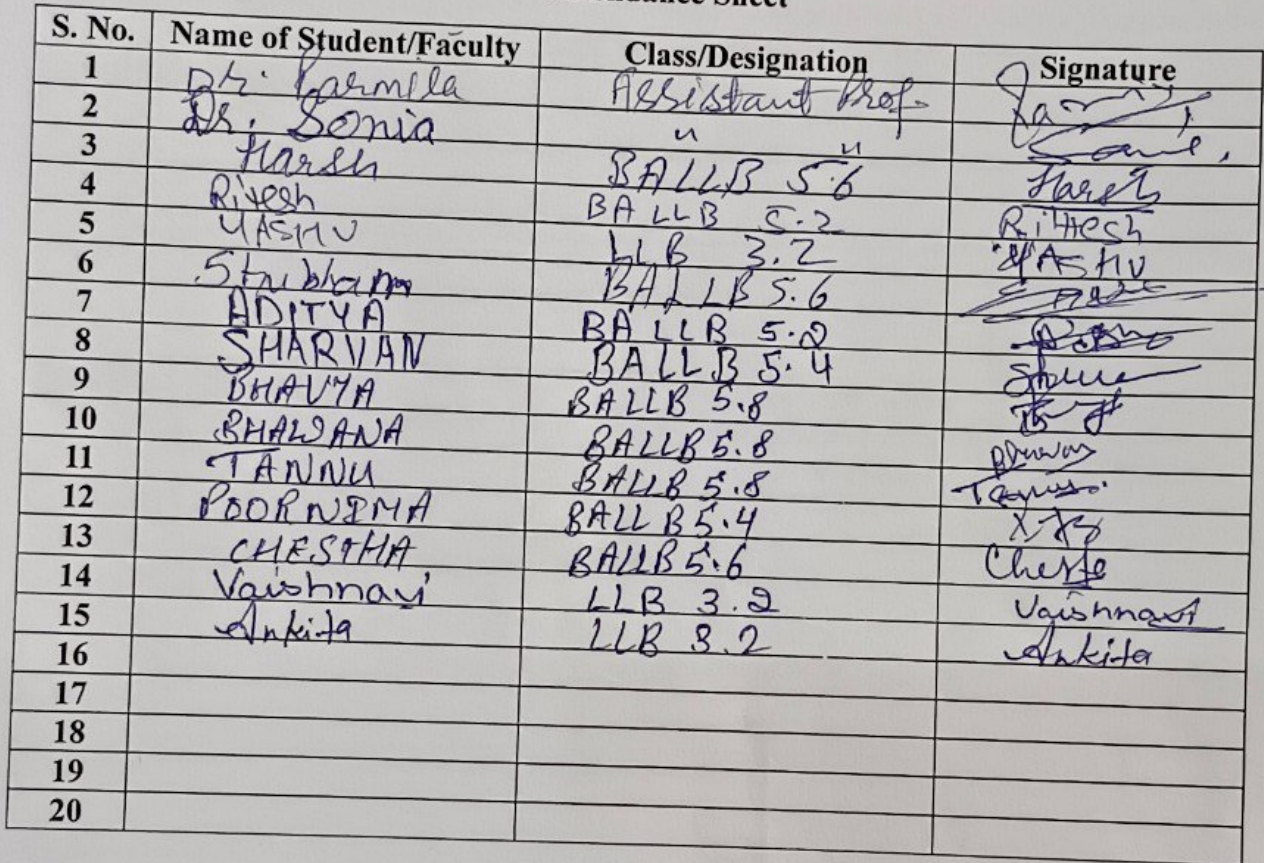 S. No. Name of Student/Faculty Class/Designation Signature
1 Dr. Parmila Assistant Prof.
2 Dr. Sonia " "
3 Harsh BALLB 5.6 Harsh
4 Ritesh BA LLB 5.2 Rittesh
5 YASHU LLB 3.2 YASHU
6 Shubham BALLB 5.6
7 ADITYA BA LLB 5.2
8 SHARVAN BALLB 5.4
9 BHAVYA BALLB 5.8
10 BHAWANA BALLB 5.8
11 TANNU BALLB 5.8
12 POORNIMA BALLB 5.4
13 CHESTHA BALLB 5.6
14 Vaishnavi LLB 3.2 Vaishnavi
15 Ankita LLB 3.2 Ankita
16
17
18
19
20